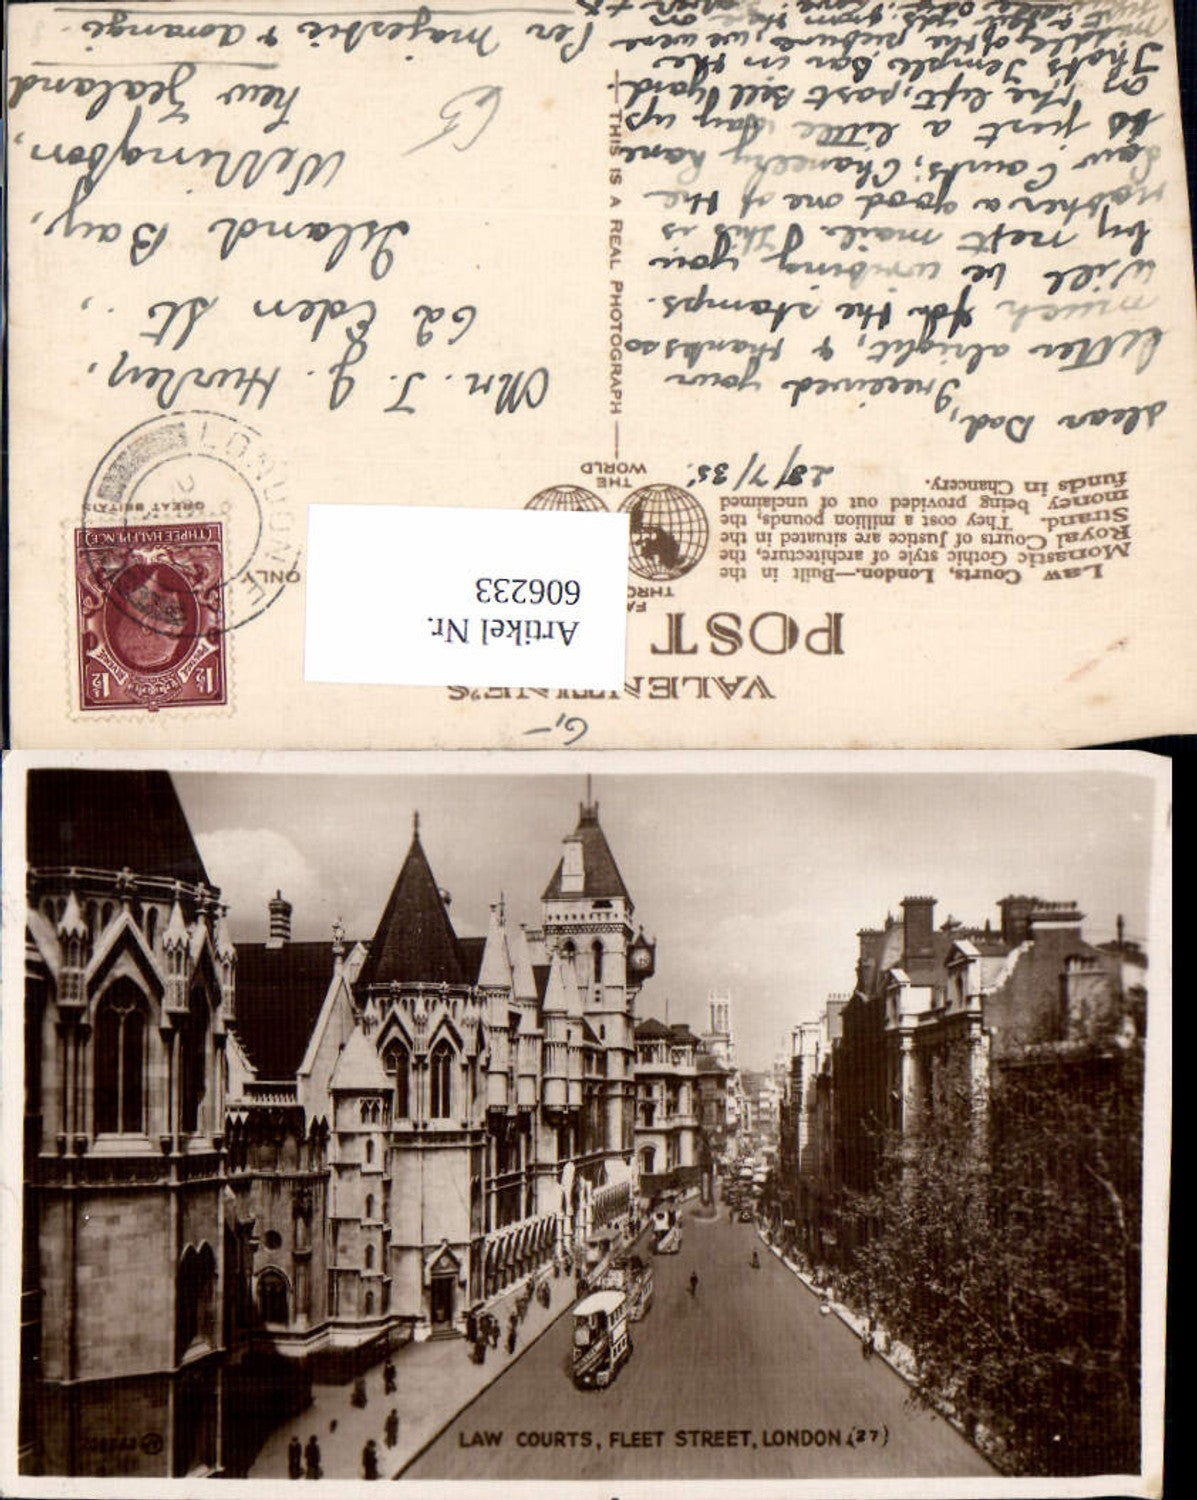 VALENTINE'S
POST
FA
THRO
THE
WORLD
Artikel Nr.
606233
6,-
ONLY
1½ POSTAGE REVENUE 1½
(THREE HALFPENCE)
GREAT BRITAIN
LONDON
Law Courts, London.—Built in the
Monastic Gothic style of architecture, the
Royal Courts of Justice are situated in the
Strand. They cost a million pounds, the
money being provided out of unclaimed
funds in Chancery.
28/7/35.
Dear Dad,
I received your
letter alright, & thanks so
much for the stamps.
Will be writing you
by next mail. This is
rather a good one of the
Law Courts; Chancery Lane
is just a little way up
on the left, past Bell Yard.
That's Temple Bar in the
middle of the picture, we were
THIS IS A REAL PHOTOGRAPH
Mr. T. J. Hurley,
62 Eden St.,
Island Bay,
Wellington,
New Zealand
Per Majestic & Aorangi.
LAW COURTS, FLEET STREET, LONDON (27)